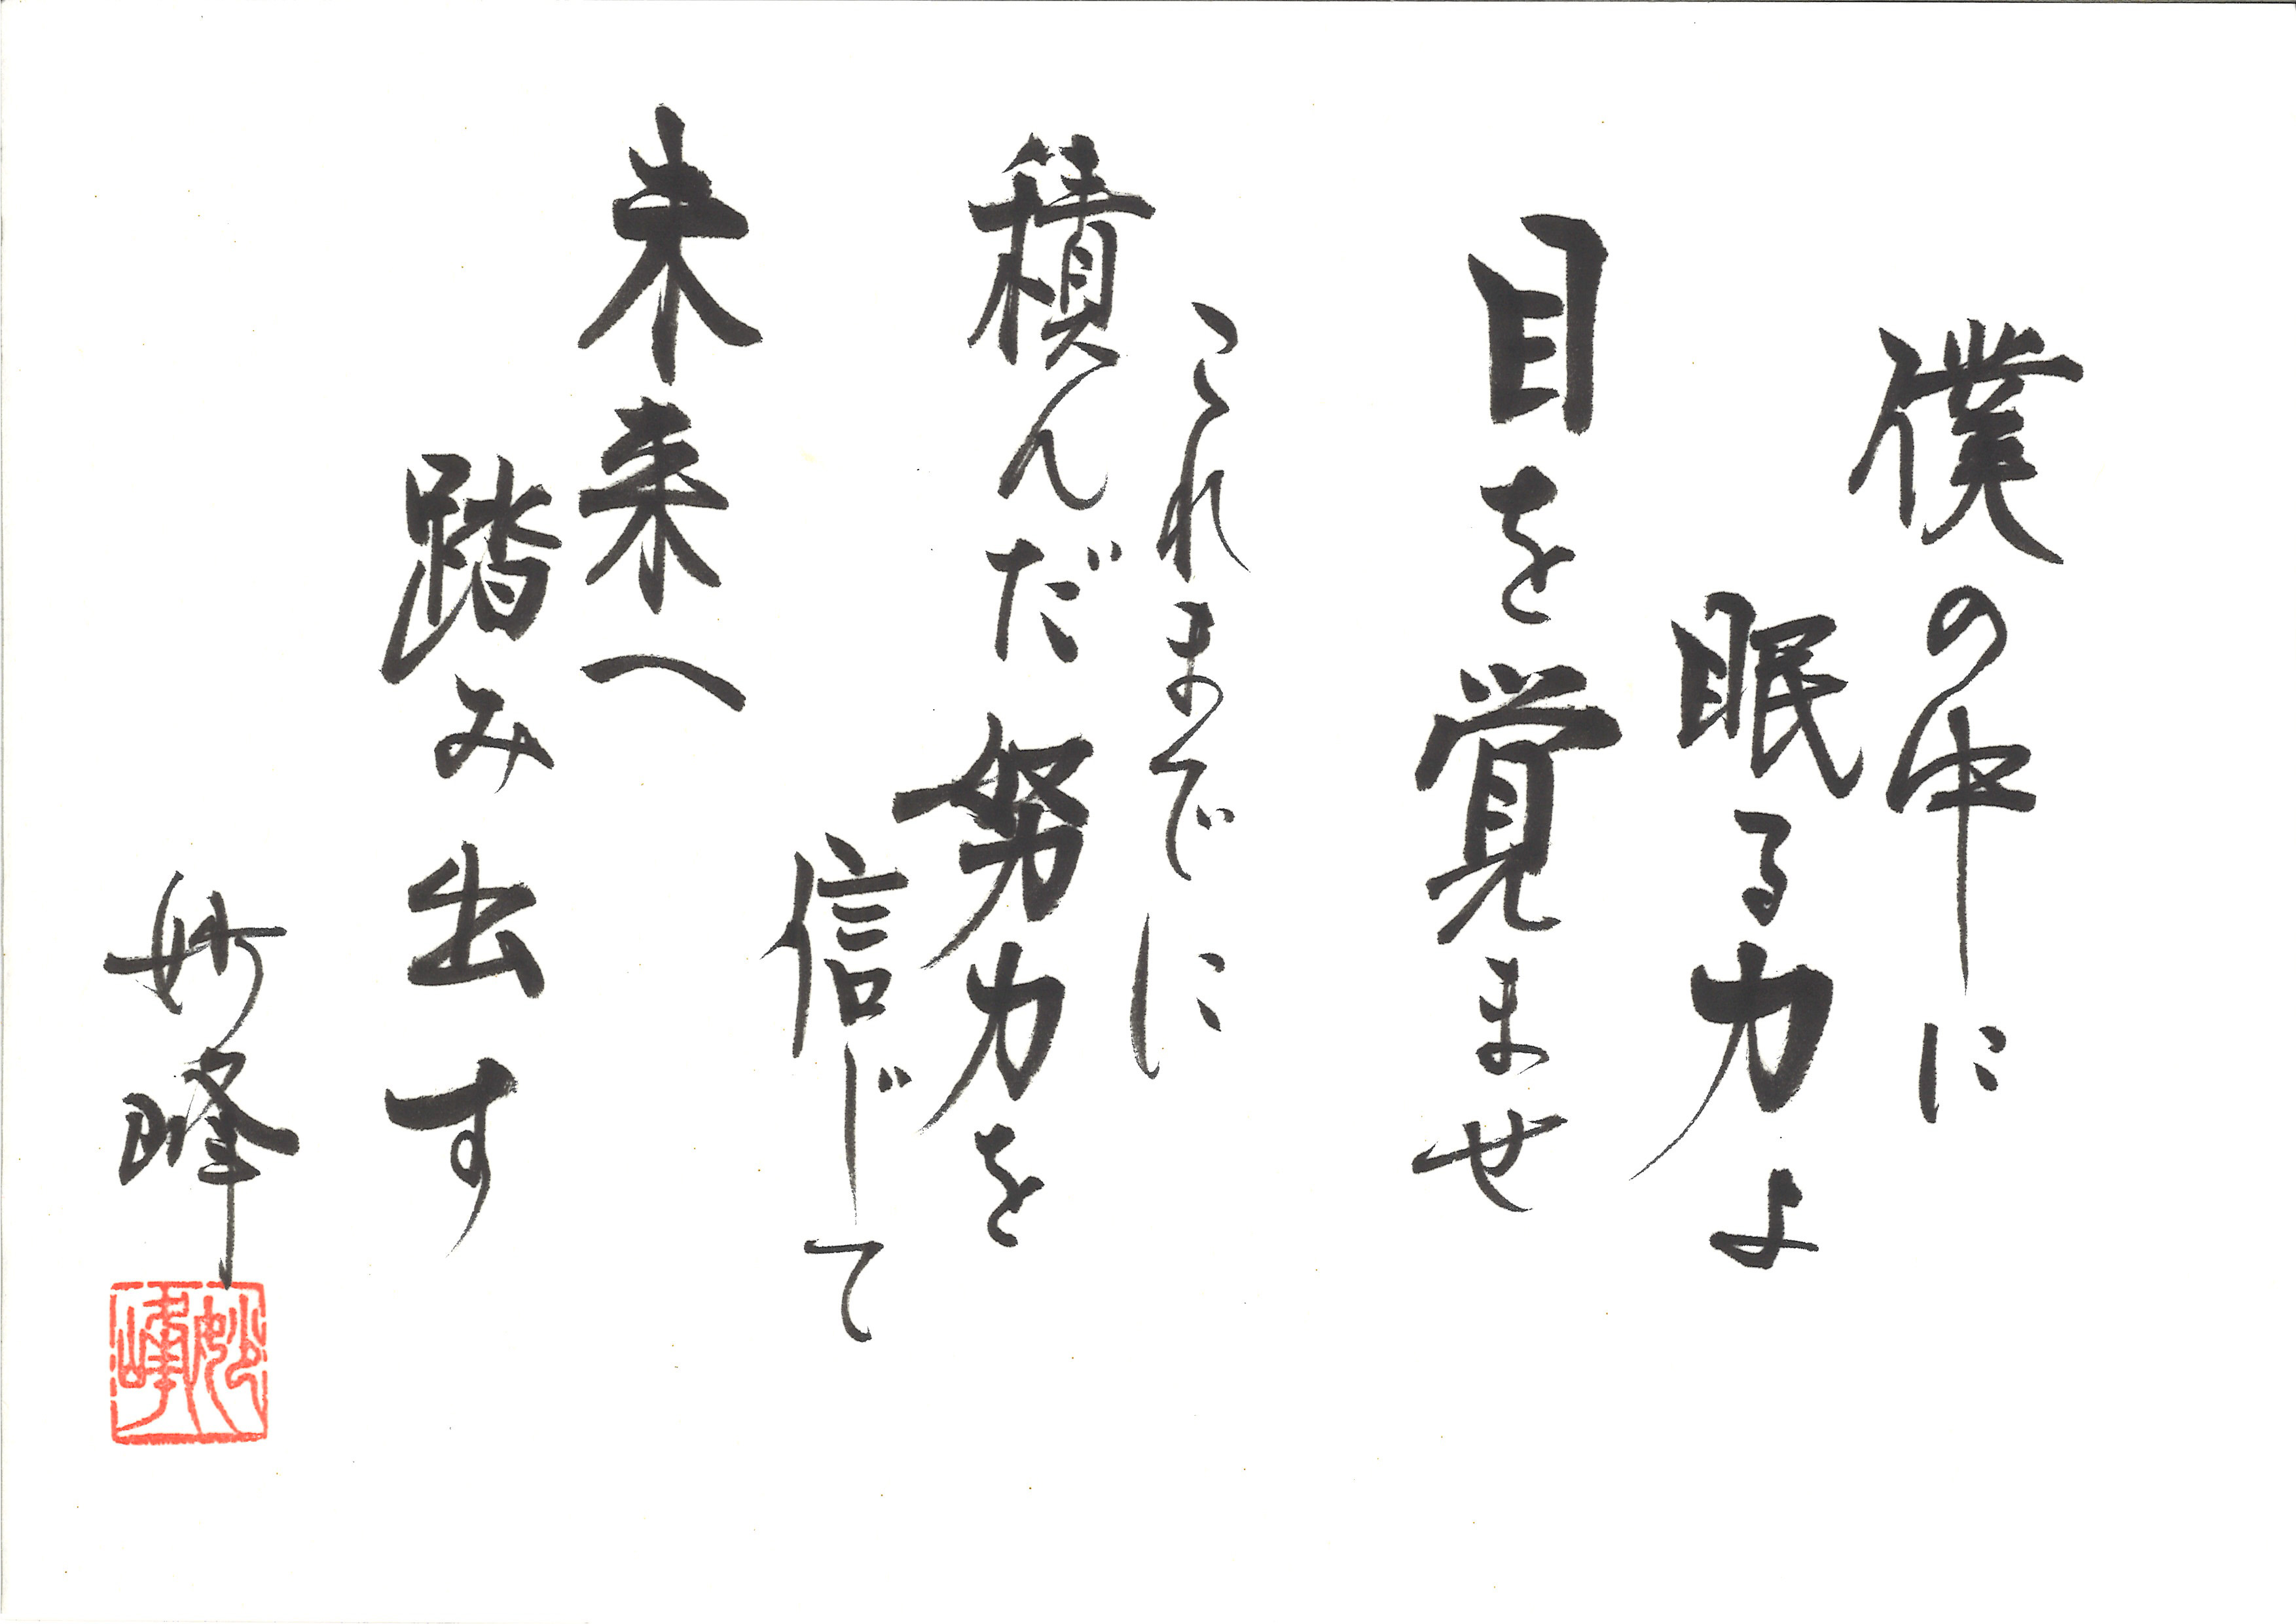 僕の中に
眠る力よ
目を覚ませ
これまでに
積んだ努力を
信じて
未来へ
踏み出す
妙峰
妙峰